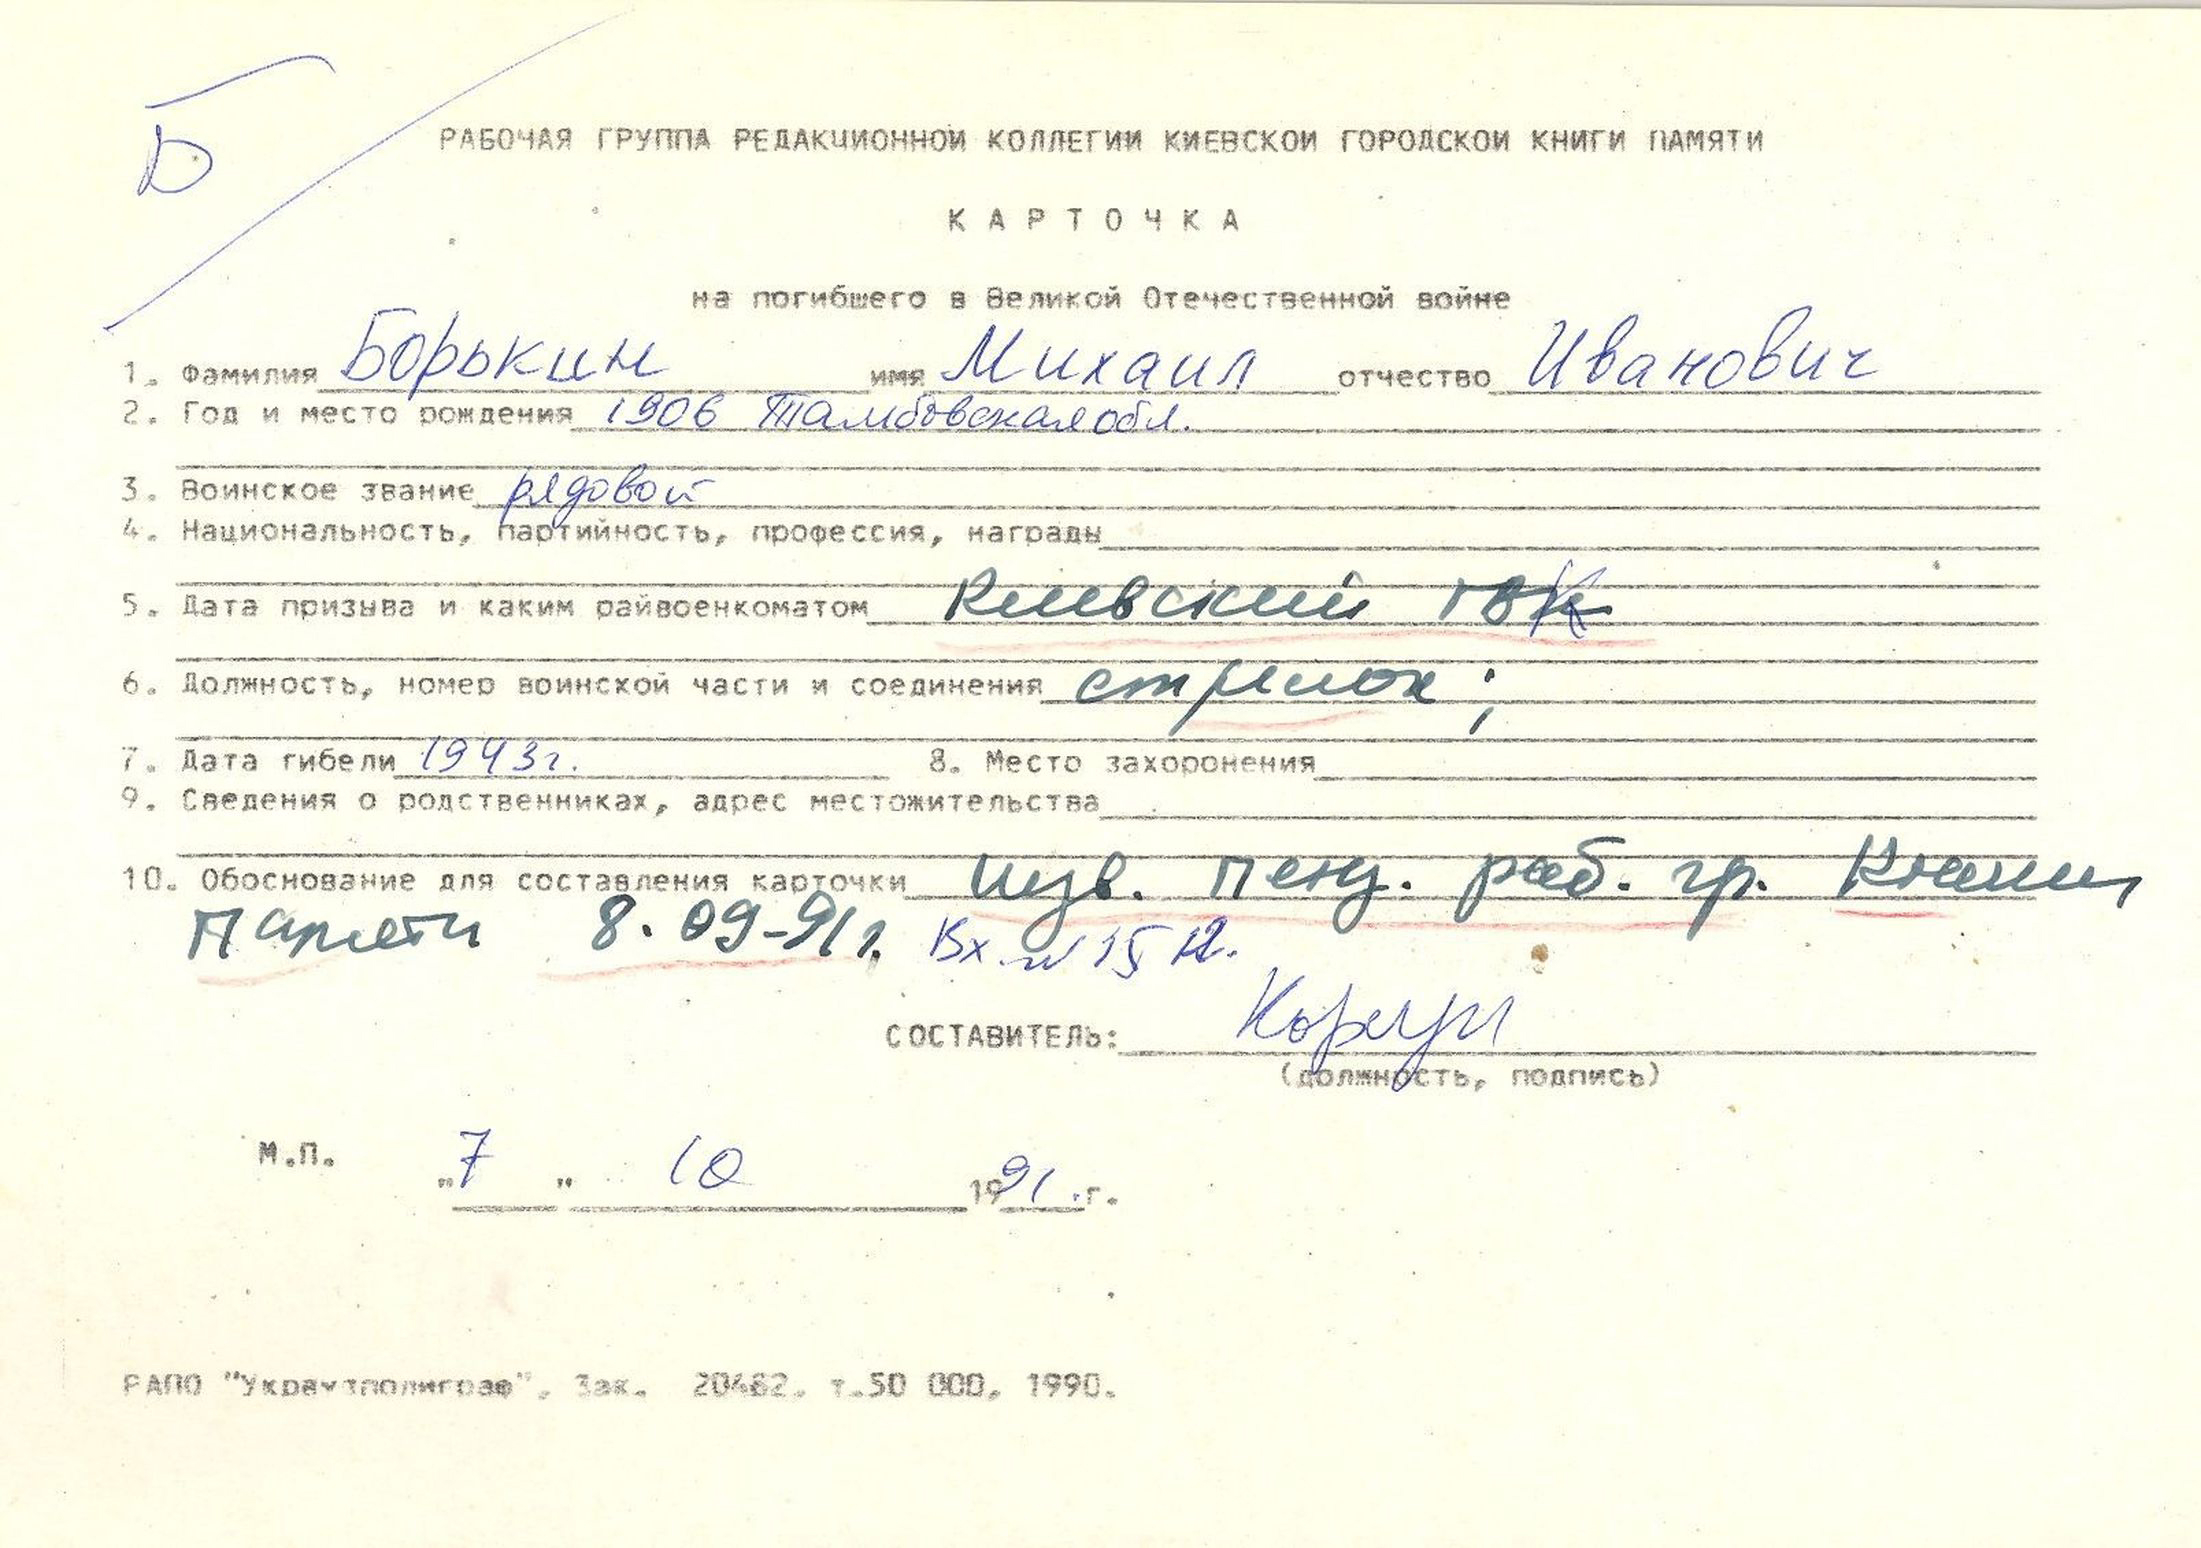 Б
РАБОЧАЯ ГРУППА РЕДАКЦИОННОЙ КОЛЛЕГИИ КИЕВСКОЙ ГОРОДСКОЙ КНИГИ ПАМЯТИ
КАРТОЧКА
на погибшего в Великой Отечественной войне
1. Фамилия Борькин имя Михаил отчество Иванович
2. Год и место рождения 1906 Тамбовская обл.
3. Воинское звание рядовой
4. Национальность, партийность, профессия, награды
5. Дата призыва и каким райвоенкоматом Киевский ГВК
6. Должность, номер воинской части и соединения стрелок;
7. Дата гибели 1943г. 8. Место захоронения
9. Сведения о родственниках, адрес местожительства
10. Обоснование для составления карточки Изв. Пенз. раб. гр. Книги
Памяти 8.09-91г. Вх. №
СОСТАВИТЕЛЬ:
(должность, подпись)
М.П. "7" 10 1991 г.
РАПО "Укрвузполиграф". Зак. 20482. т.50 000, 1990.